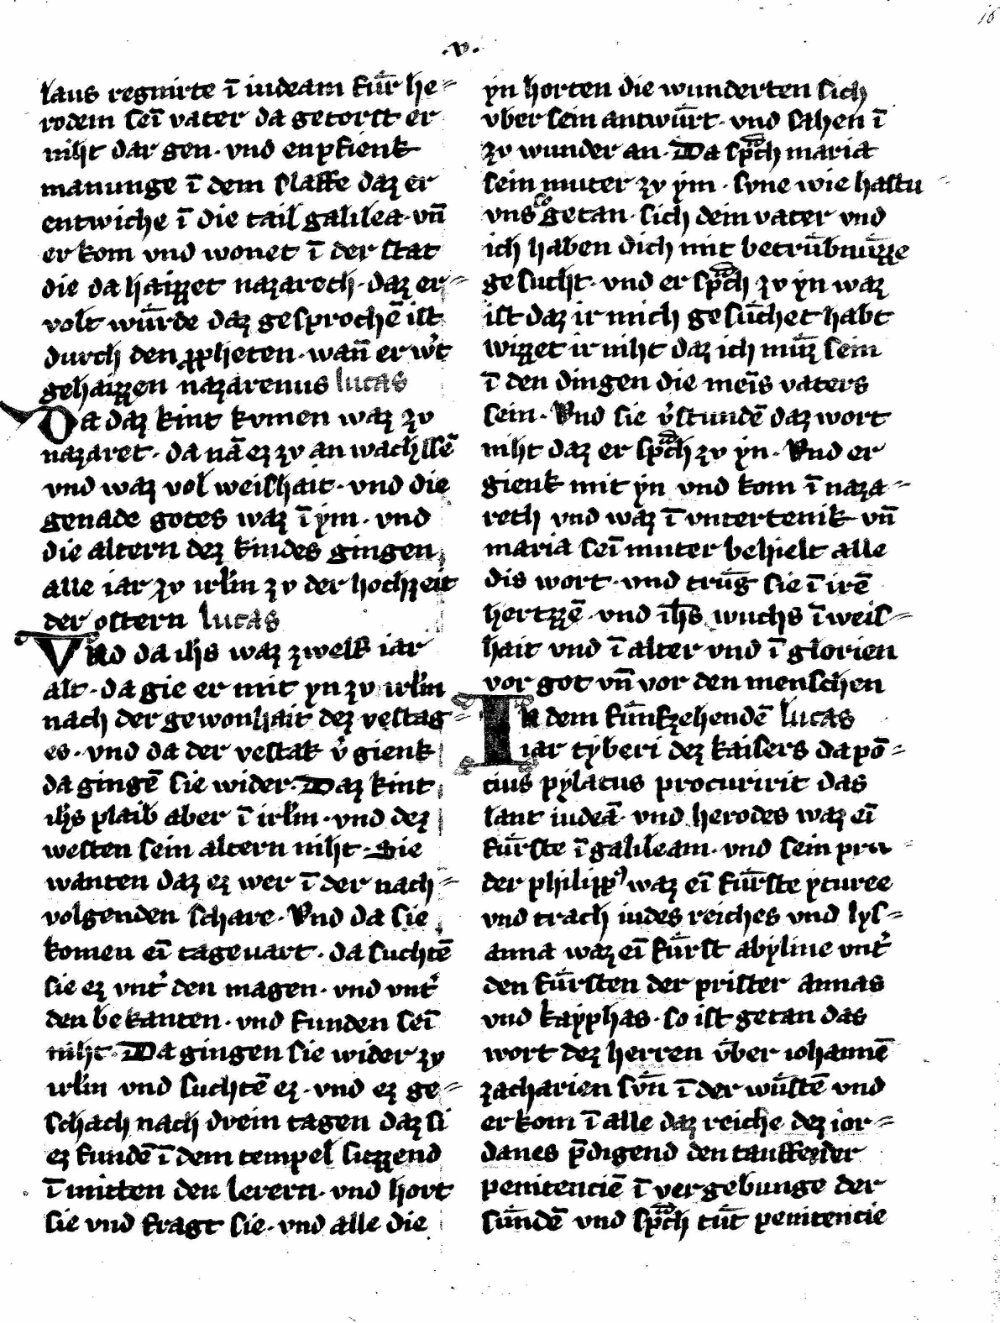 16
·v·
laus regnirte ī iudeam fuͤr he⸗
rodem seī vater da getorst er
niht dar gen · vnd enpfienk
manunge ī dem slaffe daz er
entwiche ī die tail galilea · vn̄
er kom vnd wonet ī der stat
die da haizzet nazareth · daz er⸗
volt wuͤrde daz gesprochē ist
durch den ꝓpheten · wan̄ er w't
gehaizzen nazarenus lucas
Da daz kint kvmen waz zv
nazaret · da nā ez zv an wachssē
vnd waz vol weishait · vnd die
genade gotes waz ī ym · vnd
die altern dez kindes gingen
alle iar zv irl'm zv der hochzeit
der ostern lucas
Vnd da ihs waz zwelf iar
alt · da gie er mit yn zv irl'm
nach der gewonhait dez vestag⸗
es · vnd da der vestak v' gienk
da gingē sie wider · Daz kint
ihs plaib aber ī irl'm · vnd dez
westen sein altern niht · Sie
wanten daz ez wer ī der nach⸗
volgenden schare · Vnd da sie
komen eī tagevart · da suchtē
sie ez vnt' den magen · vnd vnt'
den bekanten · vnd funden seī
niht · Da gingen sie wider zv
irl'm vnd suchtē ez · vnd ez ge⸗
schach nach drein tagen daz si
ez fundē ī dem tempel sitzzend
ī mitten den lerern · vnd hort
sie vnd fragt sie · vnd alle die
yn horten die wunderten sich
vber sein antwuͤrt · vnd sahen ī
zv wunder an · Da spͣch maria
sein muter zv ym · svne wie hastu
vns so getan · sich dein vater vnd
ich haben dich mit betruͤbnuͤzze
gesucht · vnd er spͣch zv yn waz
ist daz ir mich gesuͤchet habt
wizzet ir niht daz ich muͤz sein
ī den dingen die meīs vaters
sein · Vnd sie v'stundē daz wort
niht daz er spͣch zv yn · Vnd er
gienk mit yn vnd kom ī naza⸗
reth vnd waz ī vntertenik vn̄
maria seī muter behielt alle
dis wort · vnd truͤg sie ī irē
hertzzē · vnd ihs wuchs ī weis⸗
hait vnd ī alter vnd ī glorien
vor got vn̄ vor den menschen
In dem fuͤnfzehendē lucas
iar tyberi dez kaisers da pō⸗
cius pylatus procuririt das
lant iudeā · vnd herodes waz eī
fuͤrste ī galileam · vnd sein pru⸗
der philipp' waz eī fuͤrste yturee
vnd trach indes reiches vnd lys⸗
anna waz eī fuͤrst abyline vnt'
den fuͤrsten der prister annas
vnd kayphas · so ist getan das
wort dez herren vͤber iohannē
zacharien svͤn ī der wuͤstē vnd
er kom ī alle daz reiche dez ior⸗
danes p̄digend den tauffe der
penitenciē ī vergebunge der
suͤndē vnd spͣch tuͤt penitencie